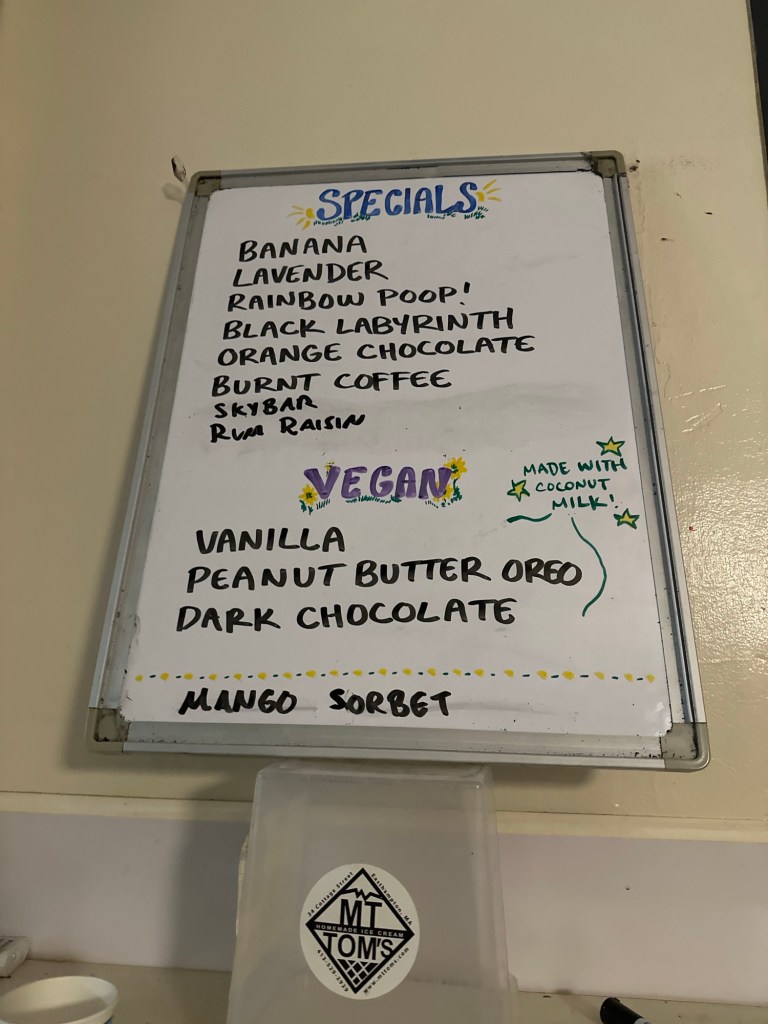 SPECIALS
BANANA
LAVENDER
RAINBOW POOP!
BLACK LABYRINTH
ORANGE CHOCOLATE
BURNT COFFEE
SKYBAR
RUM RAISIN
VEGAN
MADE WITH
COCONUT
MILK!
VANILLA
PEANUT BUTTER OREO
DARK CHOCOLATE
MANGO SORBET
34 Cottage Street Easthampton, MA
MT
HOMEMADE ICE CREAM
TOM'S
www.mttoms.com